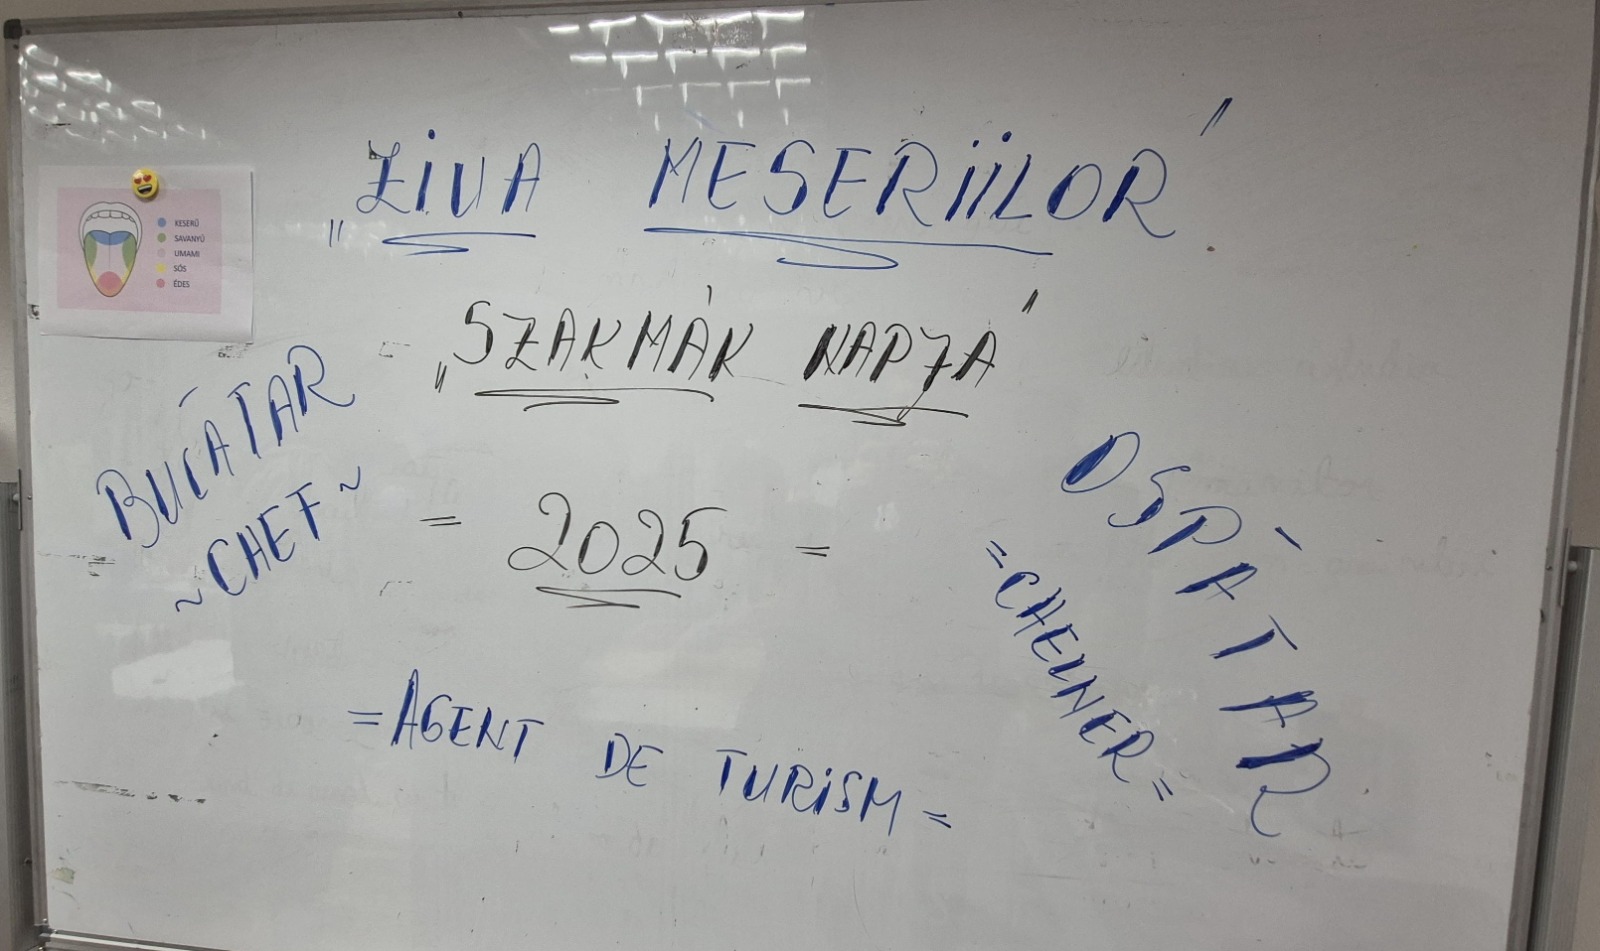 „ZIUA MESERIILOR"
KESERŰ
SAVANYÚ
UMAMI
SÓS
ÉDES
„SZAKMÁK NAPJA"
BUCĂTAR
~CHEF~
= 2025 =
OSPĂTAR
=CHELNER=
=AGENT DE TURISM=